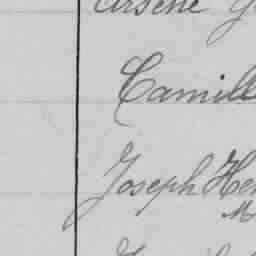 Arsene
Camill
Joseph Hen